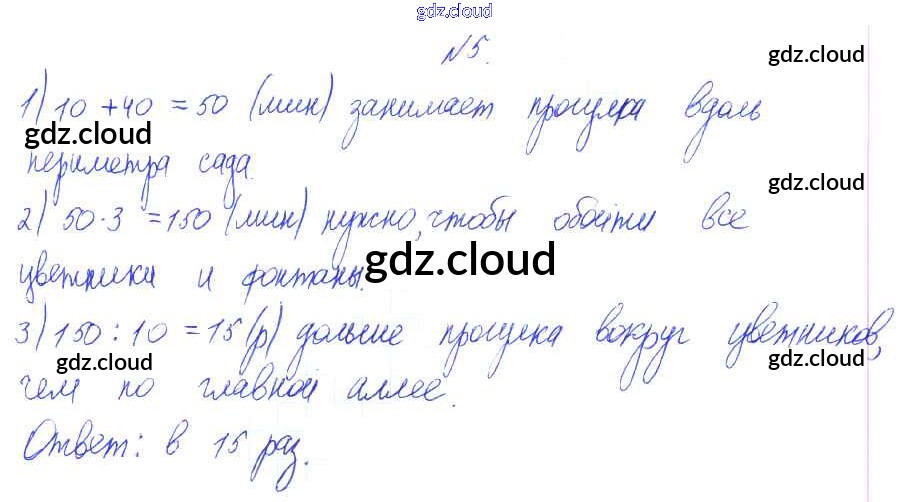 gdz.cloud
№5.
gdz.cloud
1) 10 + 40 = 50 (мин) занимает прогулка вдоль
gdz.cloud
периметра сада.
gdz.cloud
2) 50·3 = 150 (мин) нужно, чтобы обойти все
gdz.cloud
цветники и фонтаны.
3) 150 : 10 = 15 (р) дольше прогулка вокруг цветников,
gdz.cloud gdz.cloud
чем по главной аллее.
Ответ: в 15 раз.